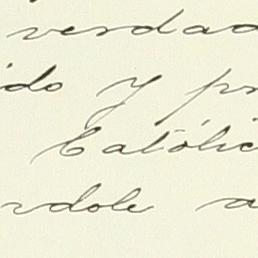 verdad
ido y pr
Católic
ndole a